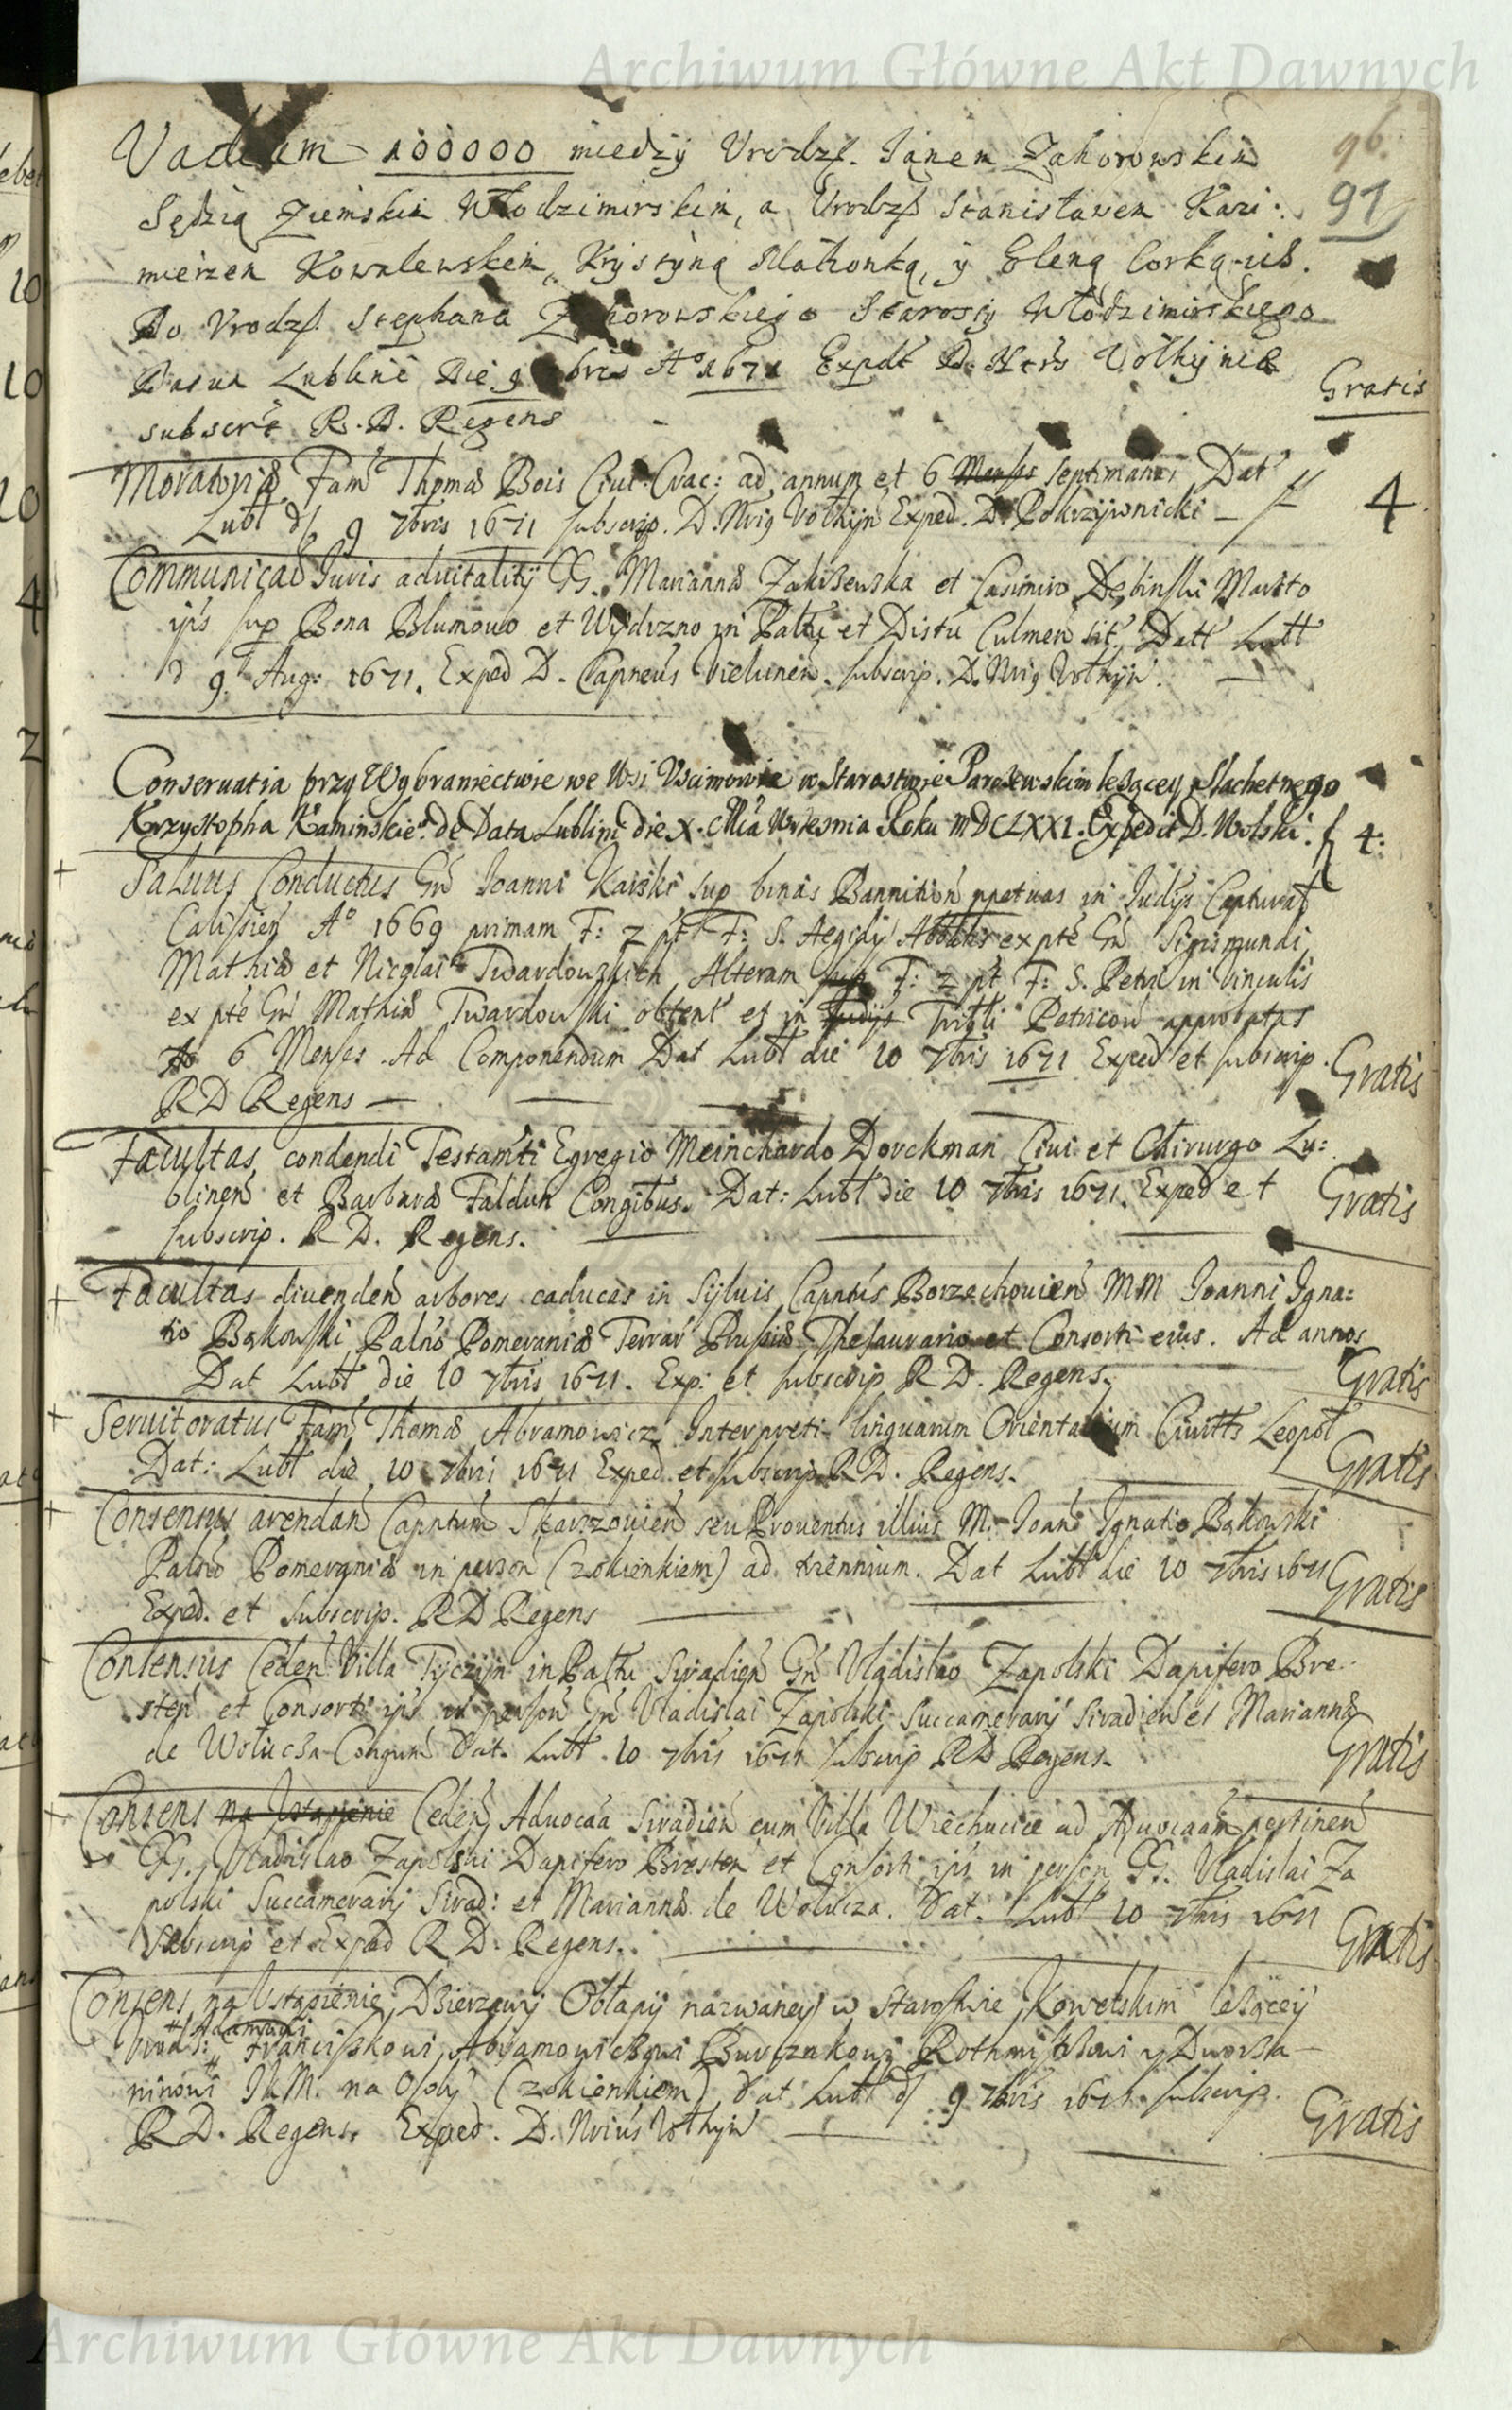 Archiwum Główne Akt Dawnych
96.
97
Vadium 100000 miedzy Vrodz. Janem Zahorowskim
Sędzią Ziemskim Włodzimirskim, a Vrodz Stanisławem Kazi:
mierzem Kowalewskim, Krystyną Małżonką, y Eleną Corką ich.
Do Vrodz. Stephana Zahorowskiego Starosty Włodzimirskiego
Datum Lublini Die 9 bris Aº 1671 Expdt D. Ntrs Volhyniae
subscrt R. D. Regens Gratis
Moratoria Fam Thoma Bois Ciui Crac: ad annum et 6 Menses Septimanas Dat
Lubl d 9 7bris 1671 subscrip. D. Nrig Volhyn Exped. D. Pokrzywnicki f 4
Communicao Juris aduitalitij GG. Marianna Zakrzewska et Casimiro Dębinski Marito
ipis sup Bona Blumowo et Wydrzno in Paltu et Distu Culmen sit. Datt Lubl
d 9 Aug: 1671. Exped D. Capneus Vielunen. subscrip. D. Nrig Volhyn.
Conseruatia przy Wybraniectwie we Wsi Vscimowie w Starostwie Parczewskim leżącey, Slachetnego
Krzysztopha Kaminskieº. de Data Lublini die X. Mca Wrzesnia Roku MDCLXXI. Expedit D. Wolski. f 4:
Saluus Conductus Gn Joanni Karski sup binas Bannition ppetuas in Judijs Capturat
Calissien Aº 1669 primam F: 2 pt F: S. Aegidij Abbatis ex pte Gn Sigismundi,
Mathia et Nicolai Twardowskich Alteram F: 2 pt F: S. Petri in vinculis
ex pte Gn Mathia Twardowski obtent et in Judijs Tritti Petricou approbatas
Ad 6 Menses Ad Componendum Dat Lubl die 10 7bris 1671 Exped et subscrip.
RD Regens Gratis
Facultas condendi Testamti Egregio Meinchardo Dorckman Ciui et Chirurgo Lu:
blinen et Barbara Falduh Congibus. Dat: Lubl die 10 7bris 1671. Exped et
subscrip. R D. Regens. Gratis
Facultas diuenden arbores caducas in Syluis Capntus Borzechouien MM Joanni Igna:
tio Bąkowski Palno Pomerania Terrar Prussia Thesaurario et Consorti eius. Ad annos
Dat Lubl die 10 7bris 1671. Exp: et subscrip R D. Regens. Gratis
Seruitoratus Fam Thoma Abramowicz Interpreti linguarum Orientalium Ciuitts Leopol
Dat: Lubl die 10 7bris 1671 Exped. et subscrip RD. Regens. Gratis
Consensus arendan Capntum Skarszouien seu Prouentus illius M. Joan Ignatio Bąkowski
Palno Pomerania in person (z okienkiem) ad triennium. Dat Lubl die 10 7bris 1671
Exped. et subscrip. RD Regens Gratis
Consensus Ceden Villa Tyczyn in Paltu Siradien Gn Vladislao Zapolski Dapifero Bre-
sten et Consorti ips in person Gn Vladislai Zapolski Succamerarij Siradien et Marianna
de Wolucza Congum Dat. Lubl. 10 7bris 1671 subscrip RD Regens. Gratis
Consens na Vstąpienie Ceden Aduocaa Siradien cum Villa Wiechucice ad Aduocaam pertinen
GG. Vladislao Zapolski Dapifero Bresten et Consorti ips in person GG. Vladislai Za
polski Succamerarij Sirad: et Marianna de Wolucza. Dat. Lubl 10 7bris 1671
Subscrip et Exped R D. Regens. Gratis
Consens na Vstąpienie Dzierzawy Obłapy nazwaney w Starostwie Kowelskim leżącey
Adamowi
Vrod: Franciszkowi Abramowiczowi Burzakowi Rothmistrzowi y Dworza-
ninowi JKM. na Osoby (z okienkiem) Dat Lubl d 9 7bris 1671 subscrip.
RD. Regens. Exped. D. Nrius Volhyn Gratis
Archiwum Główne Akt Dawnych